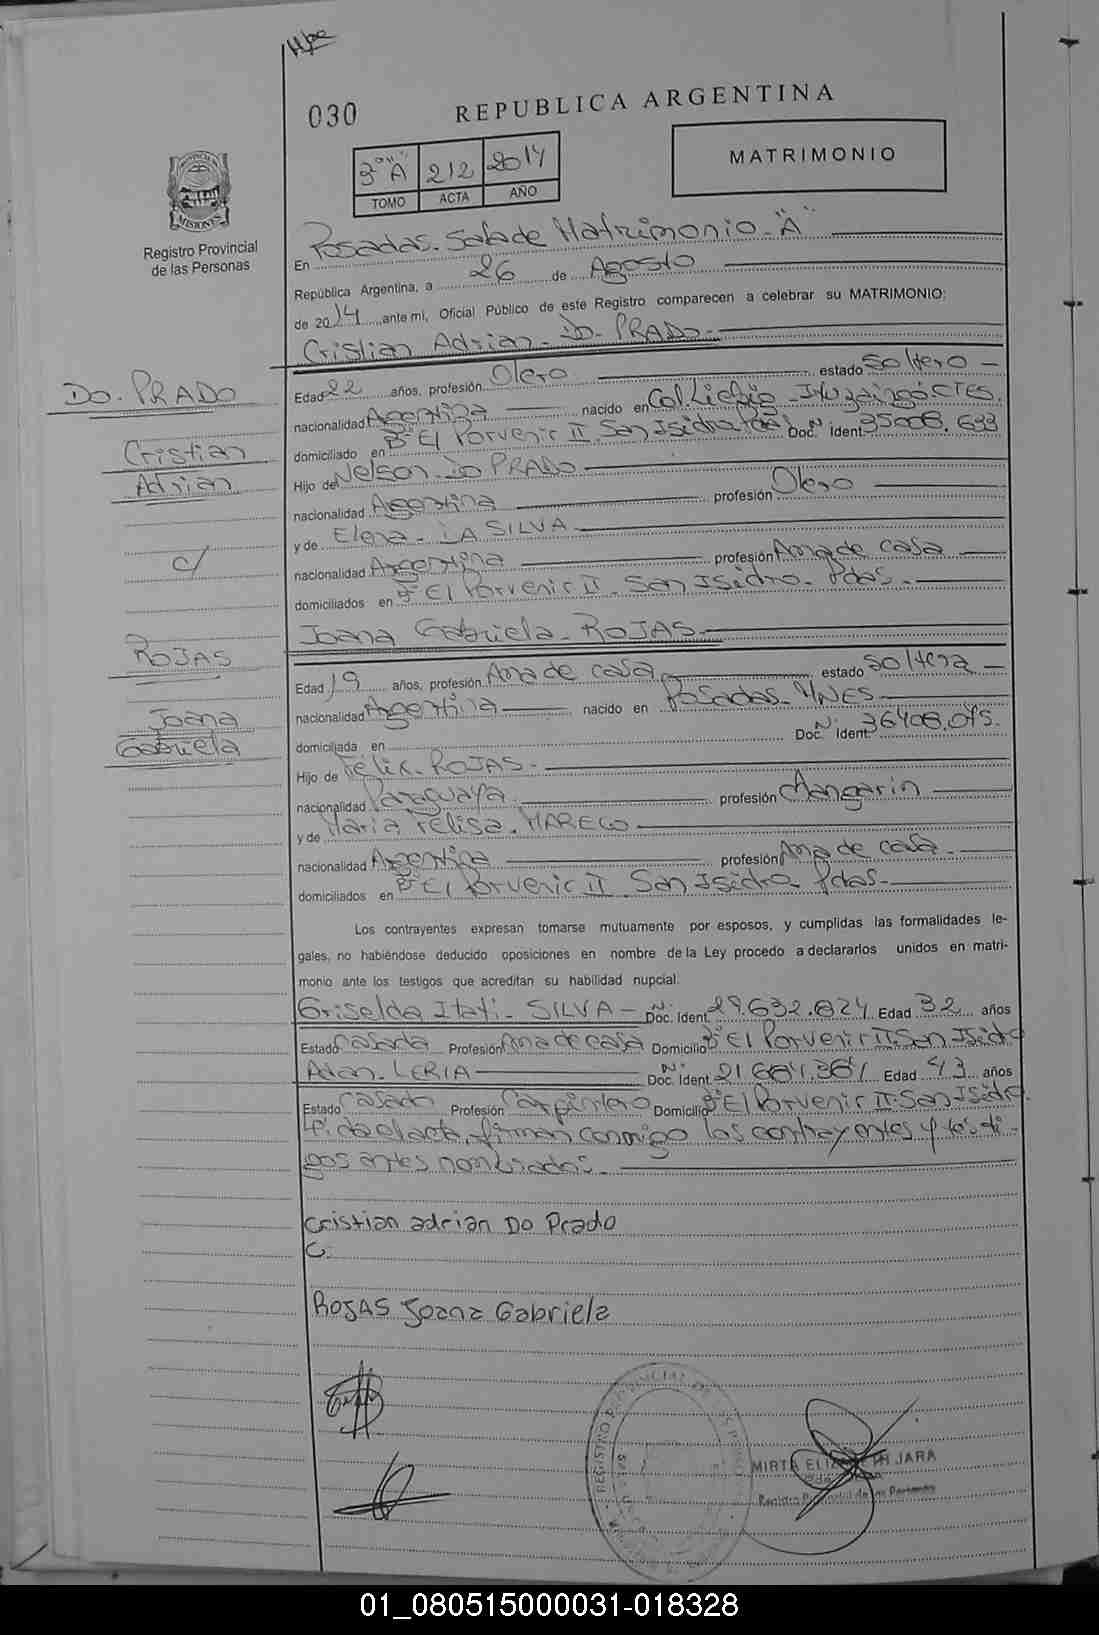 030
REPUBLICA ARGENTINA
3º "A" 212 2014
TOMO ACTA AÑO
MATRIMONIO
MISIONES
Registro Provincial
de las Personas
En Posadas. Sala de Matrimonio "A"
República Argentina, a 26 de Agosto
de 2014 ante mi, Oficial Público de este Registro comparecen a celebrar su MATRIMONIO:
Cristian Adrian Do PRADO
DO. PRADO
Cristian
Adrian
c/
ROJAS
Joana
Gabriela
Edad 22 años, profesión Olero estado soltero
nacionalidad Argentina nacido en Col. Liebig - Ituzaingó. CTES.
domiciliado en Bº El Porvenir II. San Isidro. Pdas Doc. Nº Ident. 35008.633
Hijo de Nelson Do PRADO
nacionalidad Argentina profesión Olero
y de Elena DA SILVA
nacionalidad Argentina profesión Ama de casa
domiciliados en Bº El Porvenir II. San Isidro. Pdas.
Joana Gabriela ROJAS
Edad 19 años, profesión Ama de casa estado soltera
nacionalidad Argentina nacido en Posadas. MNES
domiciliada en Doc. Nº Ident. 36408.075.
Hijo de Félix ROJAS
nacionalidad Paraguaya profesión
y de Maria Felisa MARECO
nacionalidad Argentina profesión Ama de casa
domiciliados en Bº El Porvenir II. San Isidro. Pdas.
Los contrayentes expresan tomarse mutuamente por esposos, y cumplidas las formalidades le-
gales, no habiéndose deducido oposiciones en nombre de la Ley procedo a declararlos unidos en matri-
monio ante los testigos que acreditan su habilidad nupcial.
Griselda Itati SILVA Doc. Nº Ident. 29.632.824 Edad 32 años
Estado casada Profesión Ama de casa Domicilio Bº El Porvenir II. San Isidro
LERIA Doc. Nº Ident. 21.681.361 Edad 43 años
Estado casado Profesión Carpintero Domicilio Bº El Porvenir II. San Isidro.
el acta, firman conmigo los contrayentes y testi-
gos antes nombrados.
Cristian adrian Do Prado
C.
ROJAS Joana Gabriela
MIRTA JARA
Registro Provincial de las Personas
01_080515000031-018328